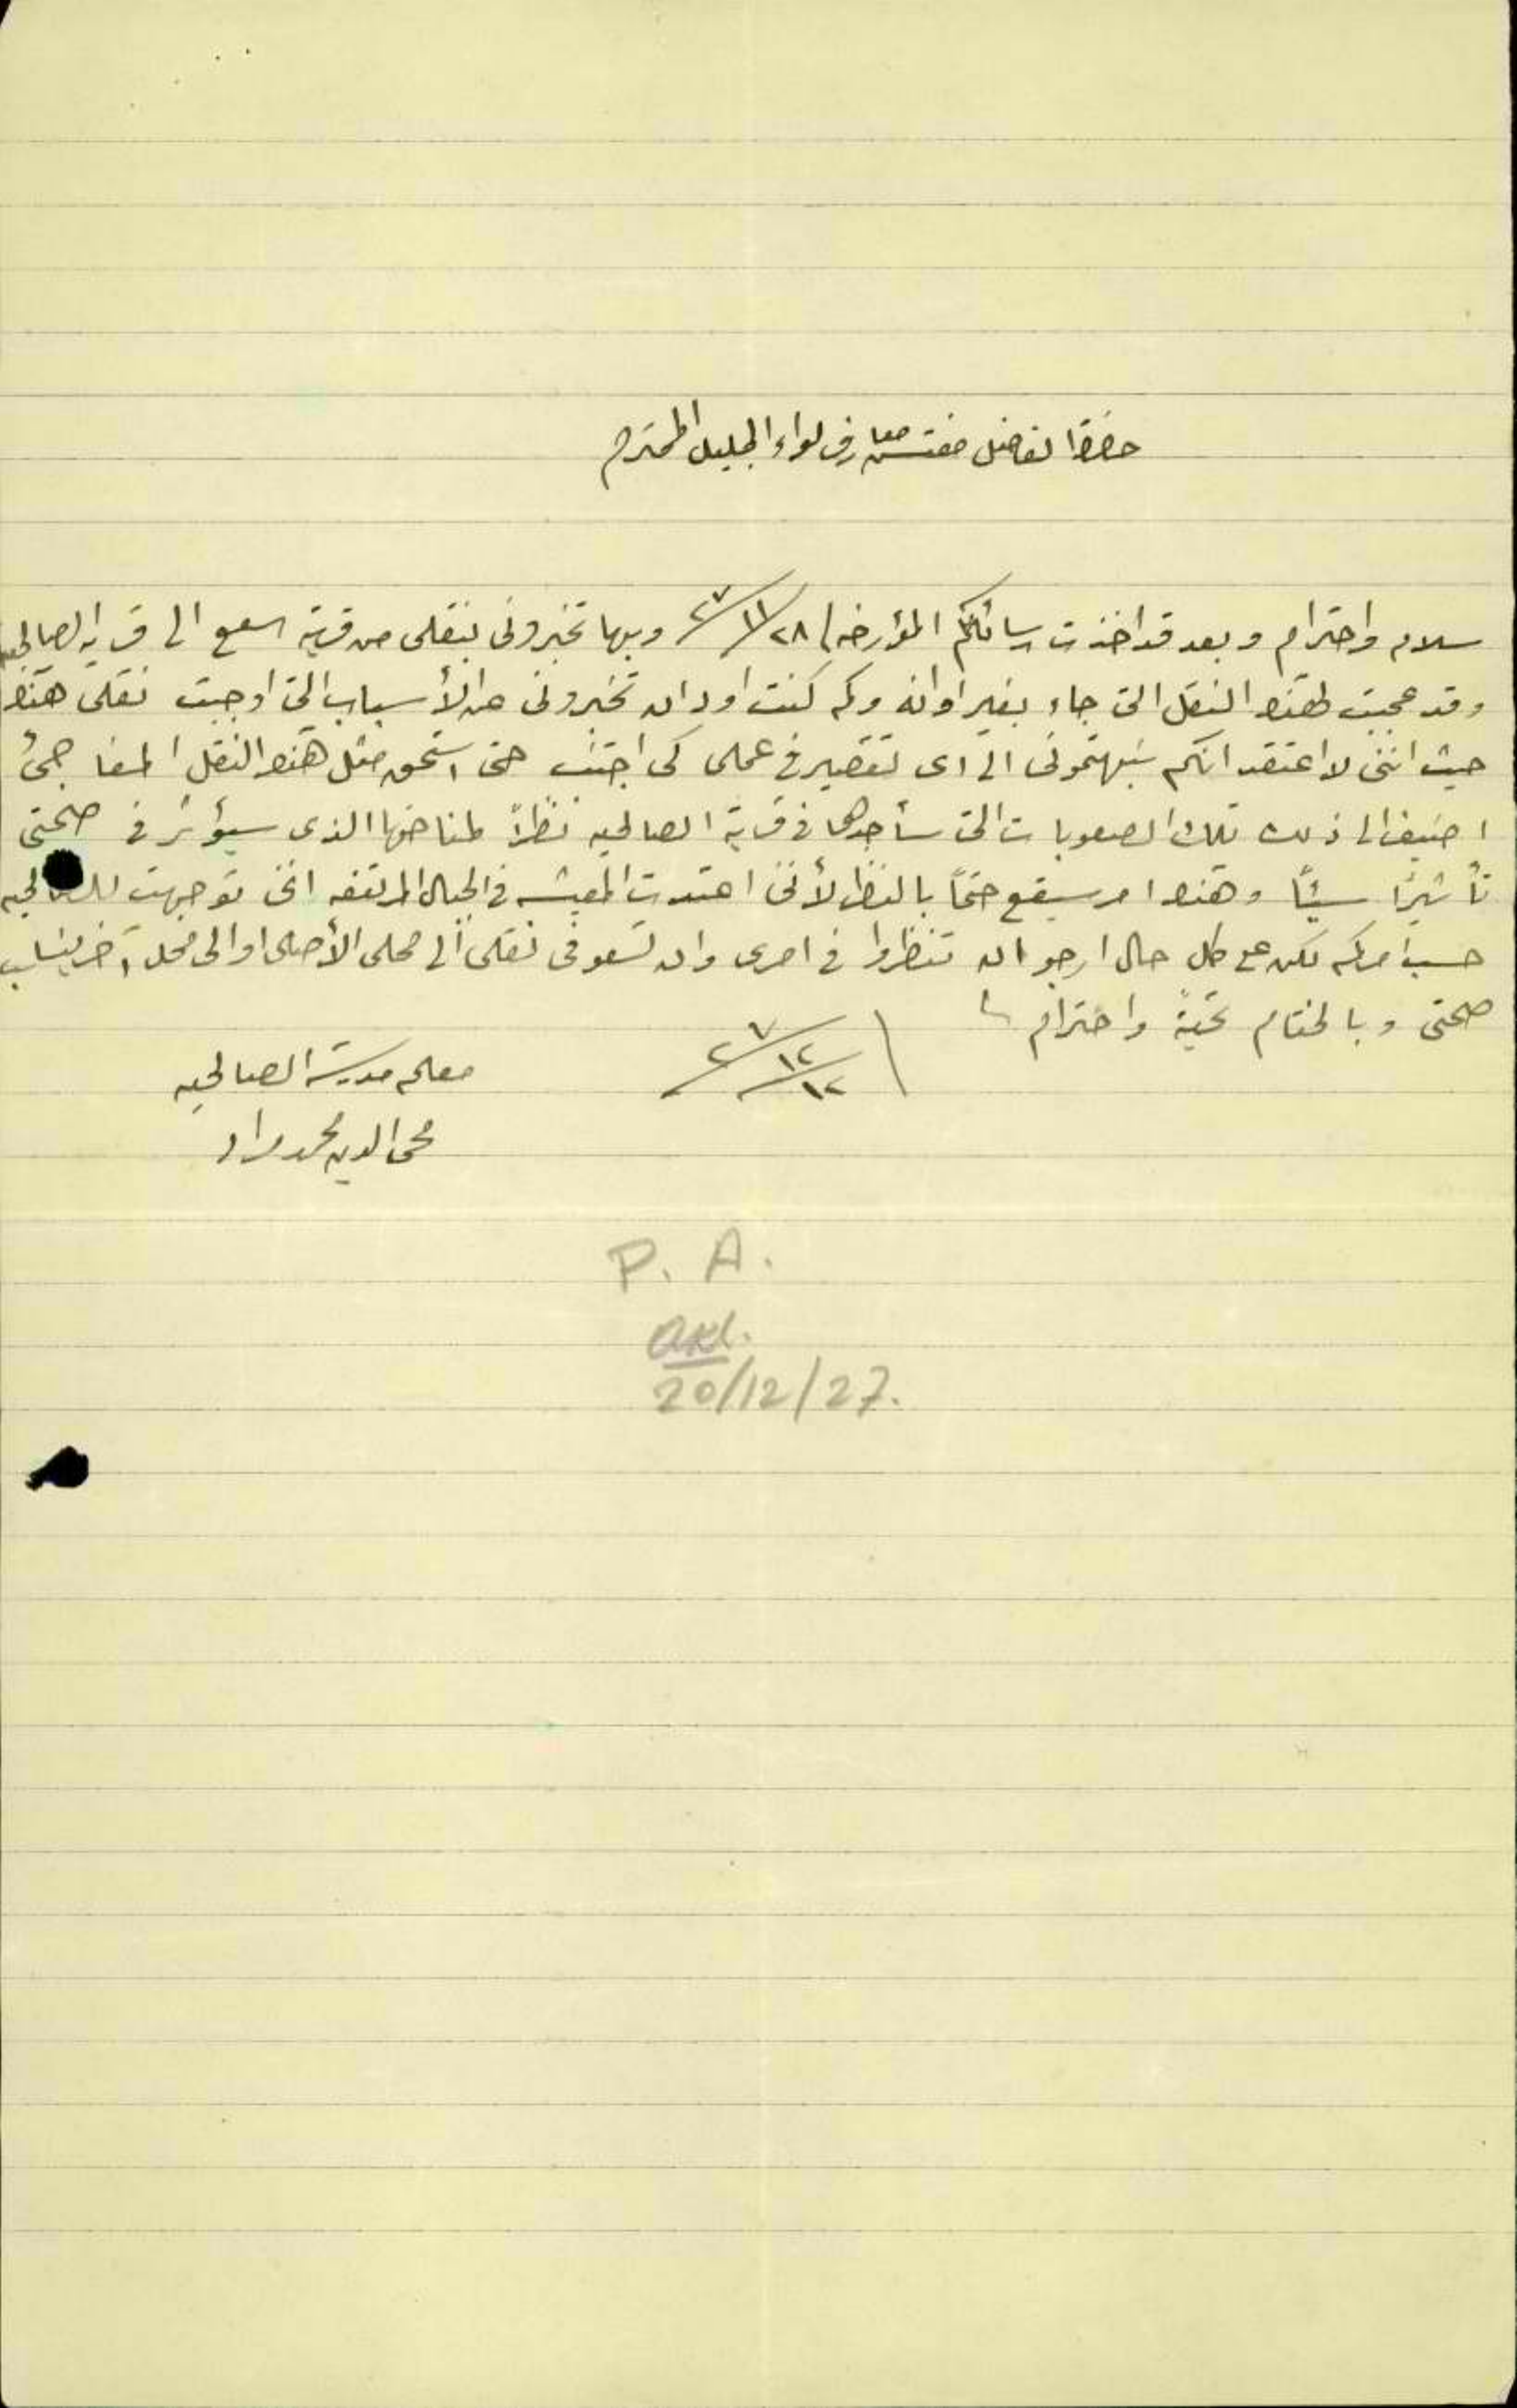 حضرة الفاضل مفتش معارف لواء الجليل المحترم
سلام واحترام وبعد قد اخذت رسالتكم المؤرخة ٢٨/١١/٢٧ وبها تخبروني بنقلي من قرية سعسع الى قرية الصالحيه
وقد عجبت لهذا النقل الذي جاء بغير اوانه وكم كنت اود ان تخبروني عن الأسباب التي اوجبت نقلي هذا
حيث انني لا اعتقد انكم نبهتموني الى اي تقصير في عملي كي اجتنبه حتى استحق مثل هذا النقل المفاجئ
اضيف الى ذلك تلك الصعوبات التي سأجدها في قرية الصالحيه نظراً لمناخها الذي سيؤثر في صحتي
تأثيراً سيئاً وهذا امر سيقع حتماً بالنظر لأنني اعتدت المعيشه في الجبال المرتفعه انني توجهت للصالحيه
حسب امركم لكن على كل حال ارجو ان تنظروا في امري وان تسعوا في نقلي الى محلي الأصلي او الى محل آخر يناسب
صحتي وبالختام تحيةً واحترام
١٢/١٢/٢٧
معلم مدرسة الصالحيه
محي الدين محمد مراد
P. A.
20/12/27.